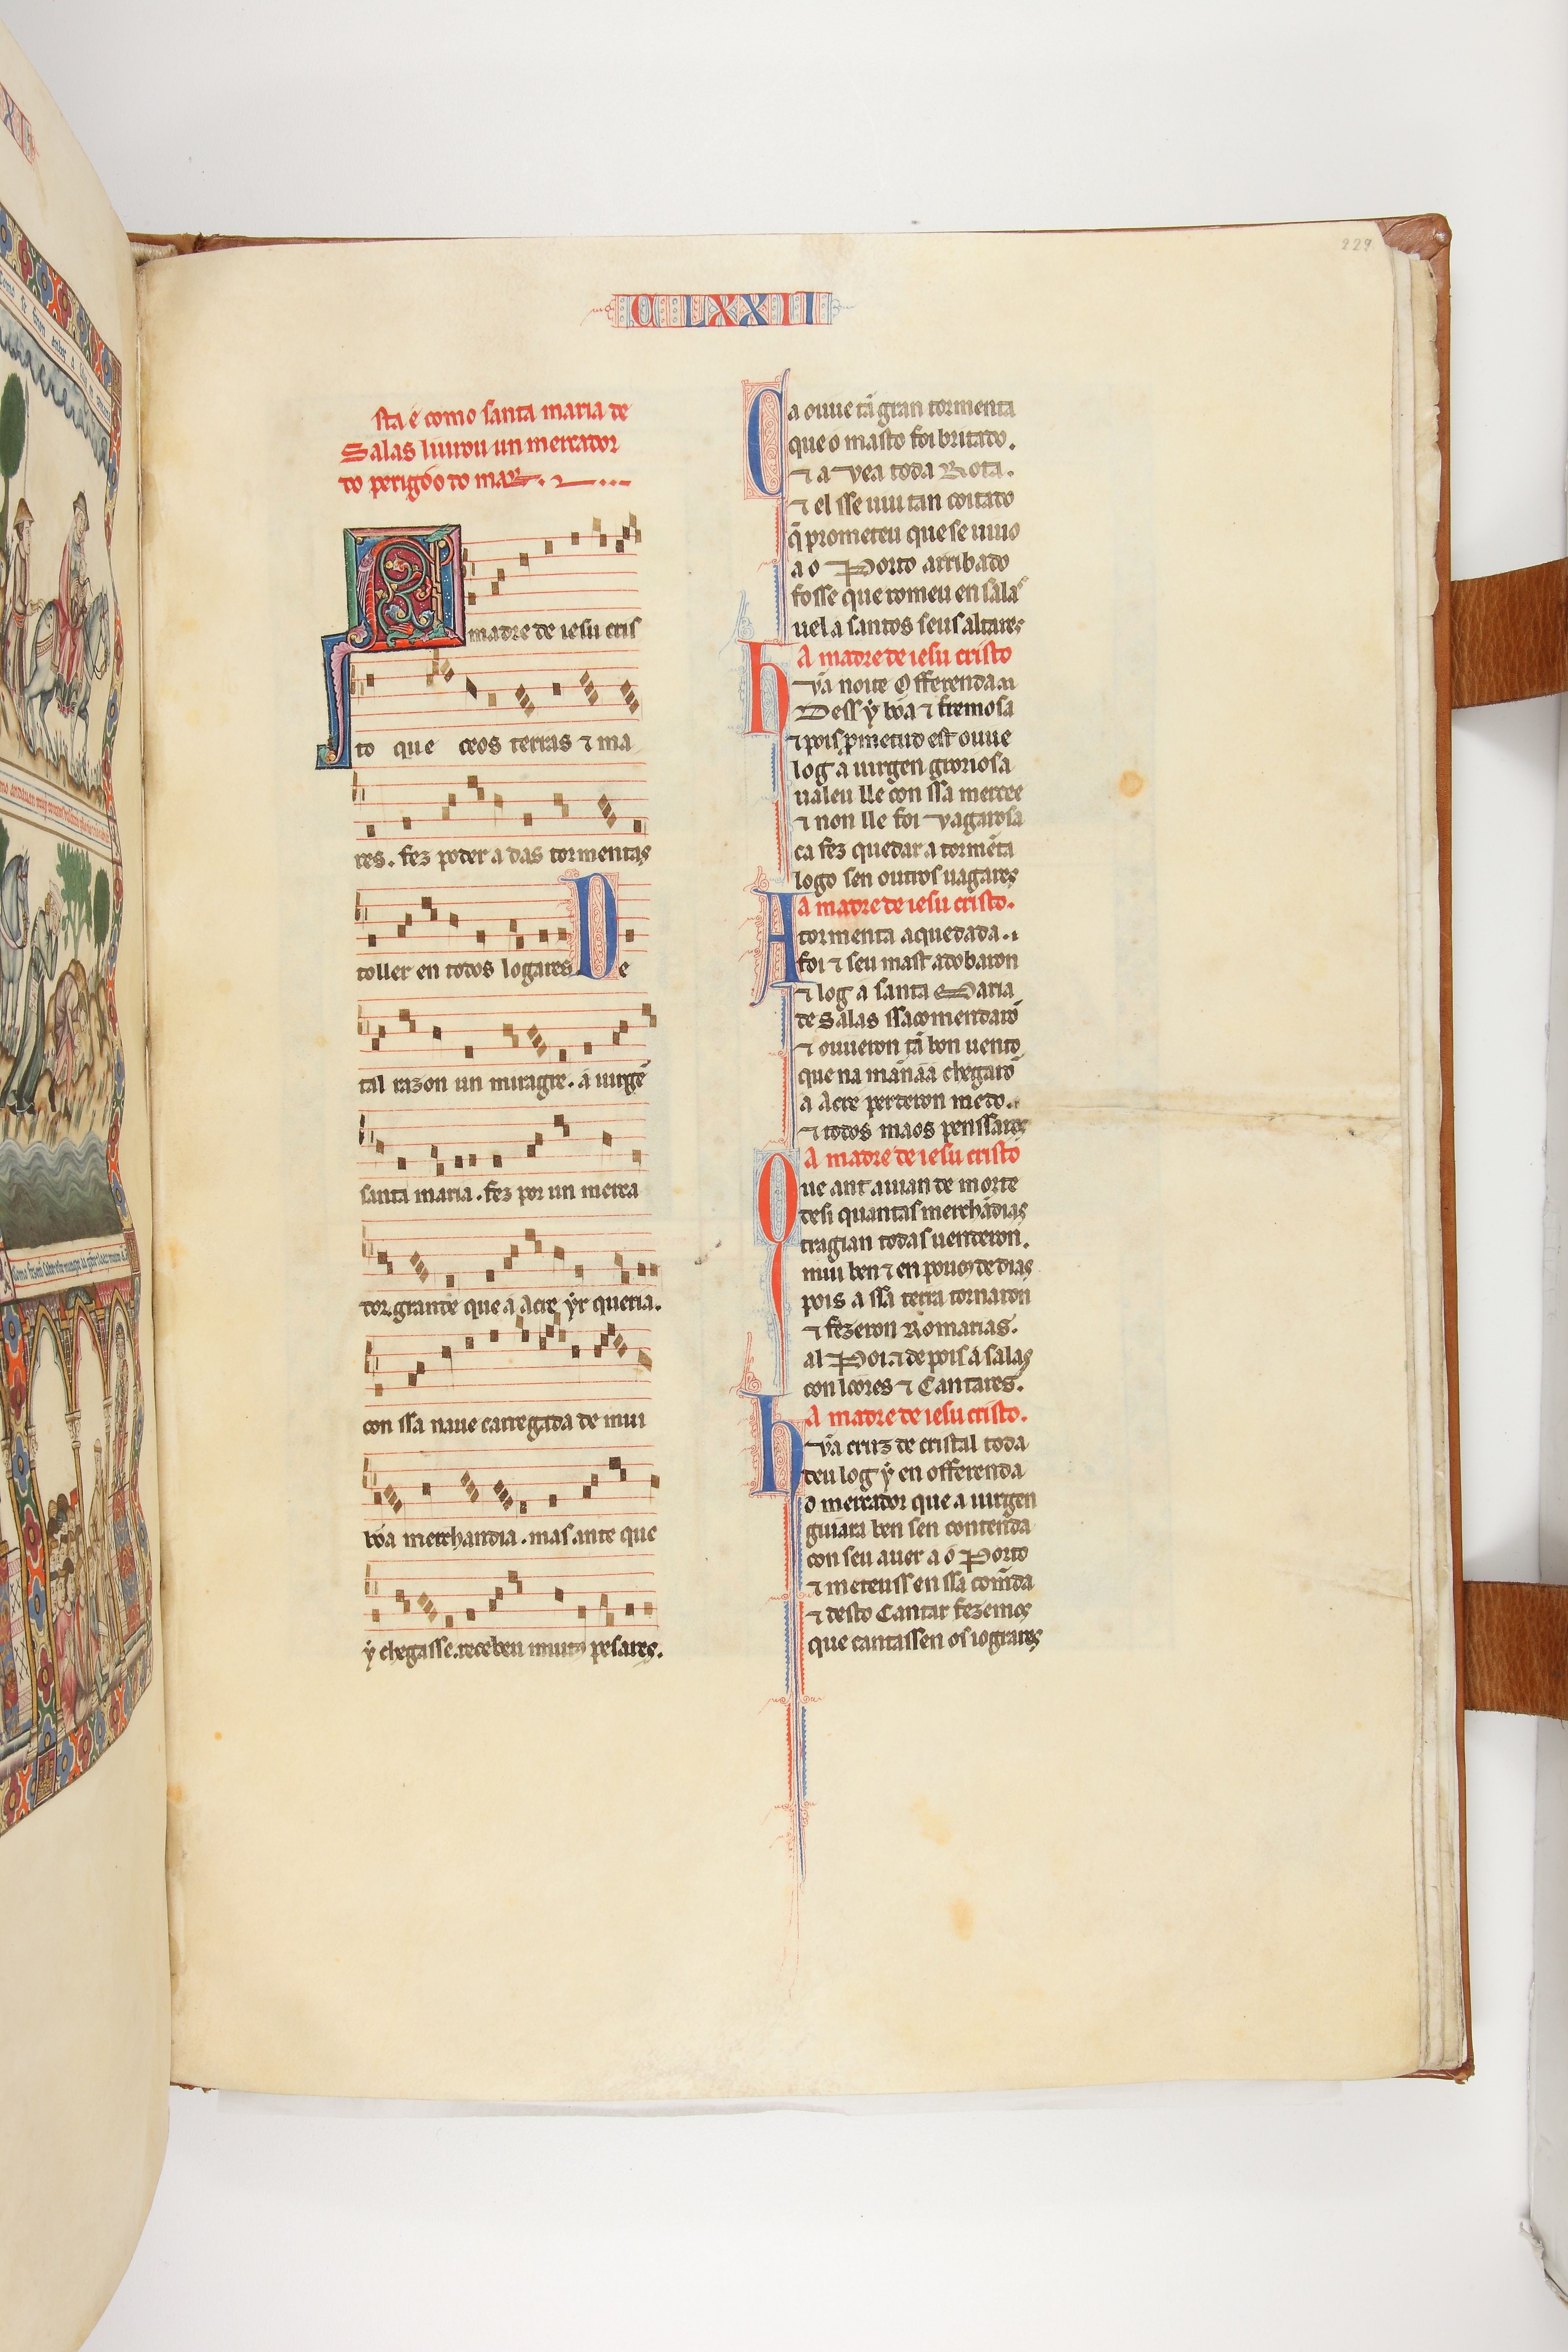 229
C LXXII
sta é como santa maria de
Salas liurou un mercador
do perigóo do mar.
A madre de iesu cris
to que ceos terras ⁊ ma
res. fez poder a das tormentas
toller en todos logares De
tal razon un miragre. a uirgẽ
santa maria. fez por un merca
dor grande que a Acre ýr queria.
con ssa naue carregada de mui
bõa merchandia. mas ante que
ý chegasse. receben muitos pesares.
Ca ouue tã gran tormenta
que o masto foi britado.
⁊ a vea toda Rota.
⁊ el sse uiu tan coitado
q̃ prometeu que se uiuo
a o Porto arribado
fosse que romeu en salas
uel a santos seus altares
A madre de iesu cristo
hũa noite Offerenda
Dess ý bõa ⁊ fremosa
⁊ pois prometud est ouue
log a uirgen groriosa
ualeu lle con ssa mercee
⁊ non lle foi vagarosa
ca fez quedar a tormẽta
logo sen outros uagares
A madre de iesu cristo.
A tormenta aquedada.
foi ⁊ seu mast adobaron
⁊ log a santa Maria
de Salas ssacomendarõ
⁊ ouueron tã bon uento
que na mãnãa chegarõ
a Acre perderon medo.
⁊ todos maos penssares
A madre de iesu cristo
Que ant auian de morte
desi quantas merchãdias
tragian todas uenderon.
mui ben ⁊ en poucos de dias
pois a ssa terra tornaron
⁊ fezeron Romarias.
al Poi. ⁊ de pois a salas
con lóores ⁊ Cantares.
A madre de iesu cristo.
hũa cruz de cristal toda
deu log ý en offerenda
o mercador que a uirgen
guiara ben sen contenda
con seu auer a o Porto
⁊ meteuss en ssa comẽda
⁊ desto Cantar fezemos
que cantassen os iograres